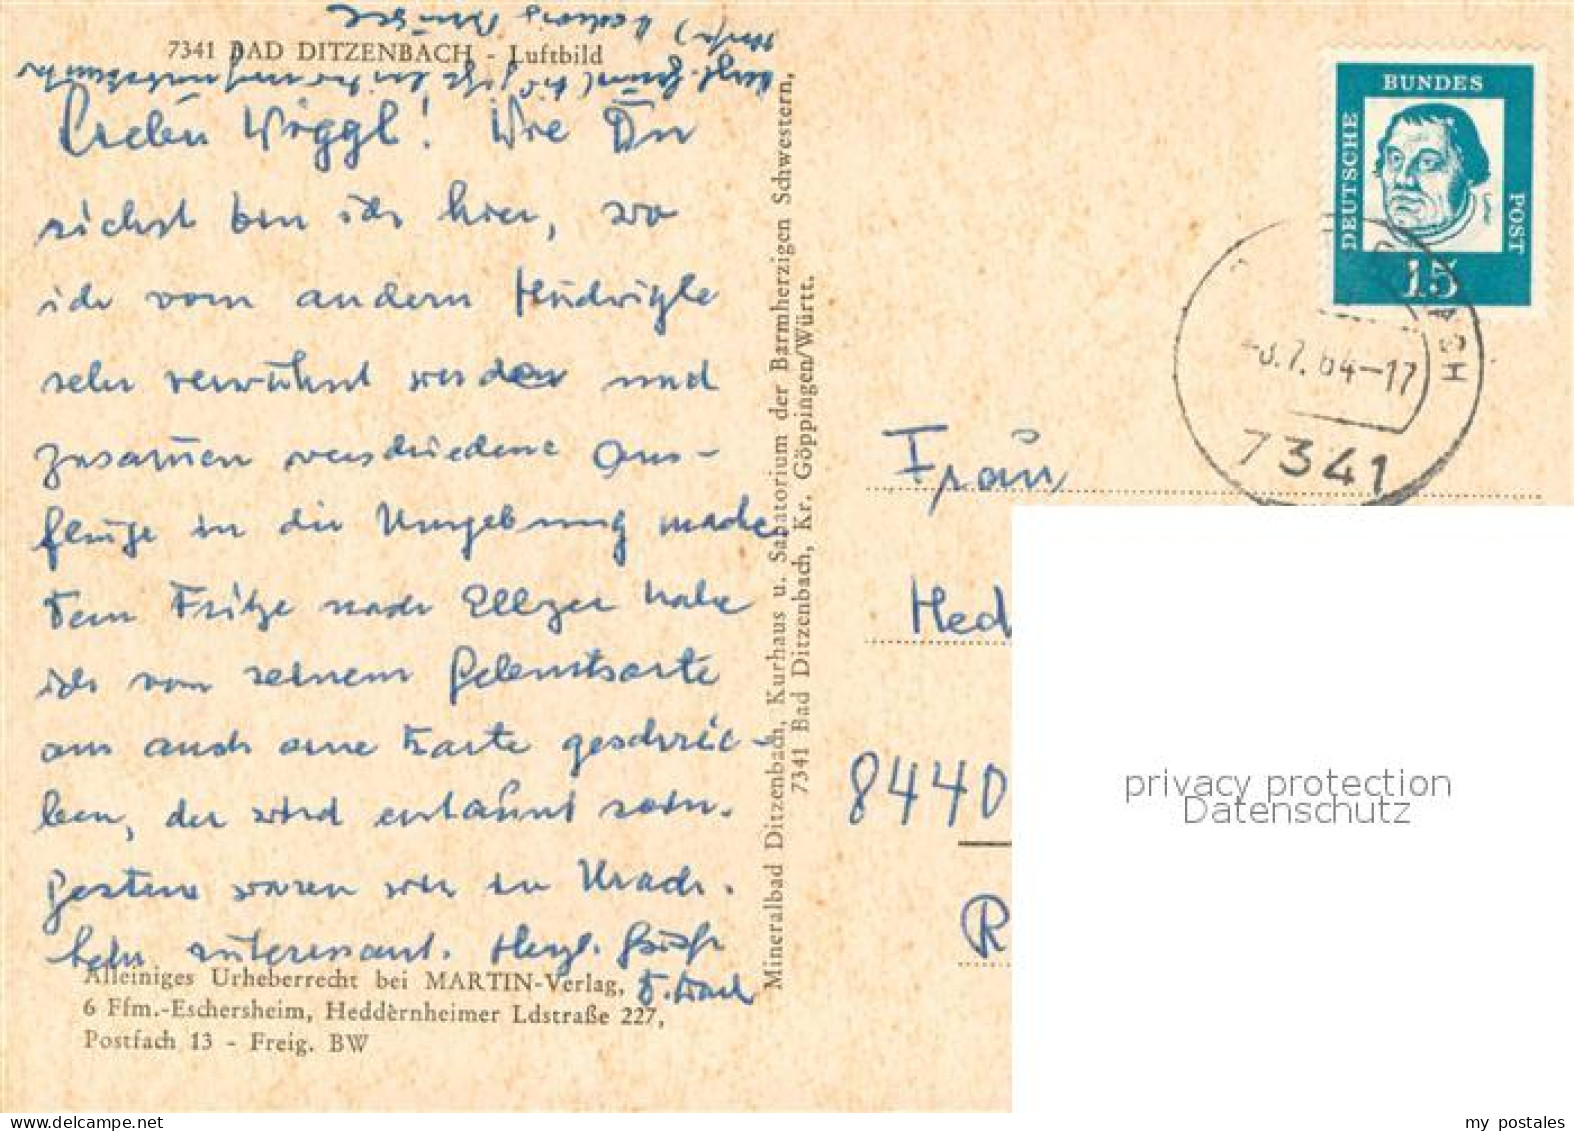 7341 BAD DITZENBACH - Luftbild
Wie Du
siehst bin ich hier, wo
ich vom andern
sehr verwöhnt werden und
zusammen verschiedene Aus-
flüge in die Umgebung mache.
Dem Fritze nach Ellzee habe
ich von seinem Geburtsorte
aus auch eine Karte geschrie-
ben, der wird erstaunt sein.
Gestern waren wir in Urach.
Sehr interessant. Herzl. Grüße
Alleiniges Urheberrecht bei MARTIN-Verlag,
6 Ffm.-Eschersheim, Heddernheimer Ldstraße 227,
Postfach 13 - Freig. BW
Mineralbad Ditzenbach, Kurhaus u. Sanatorium der Barmherzigen Schwestern,
7341 Bad Ditzenbach, Kr. Göppingen/Württ.
DEUTSCHE
BUNDES
POST
15
7.64-17
7341
Frau
Hed
8440
R
privacy protection
Datenschutz
my postales